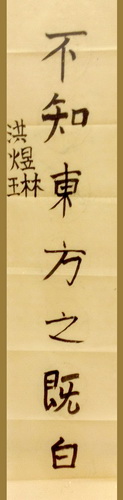 不知東方之既白
洪煜林玉